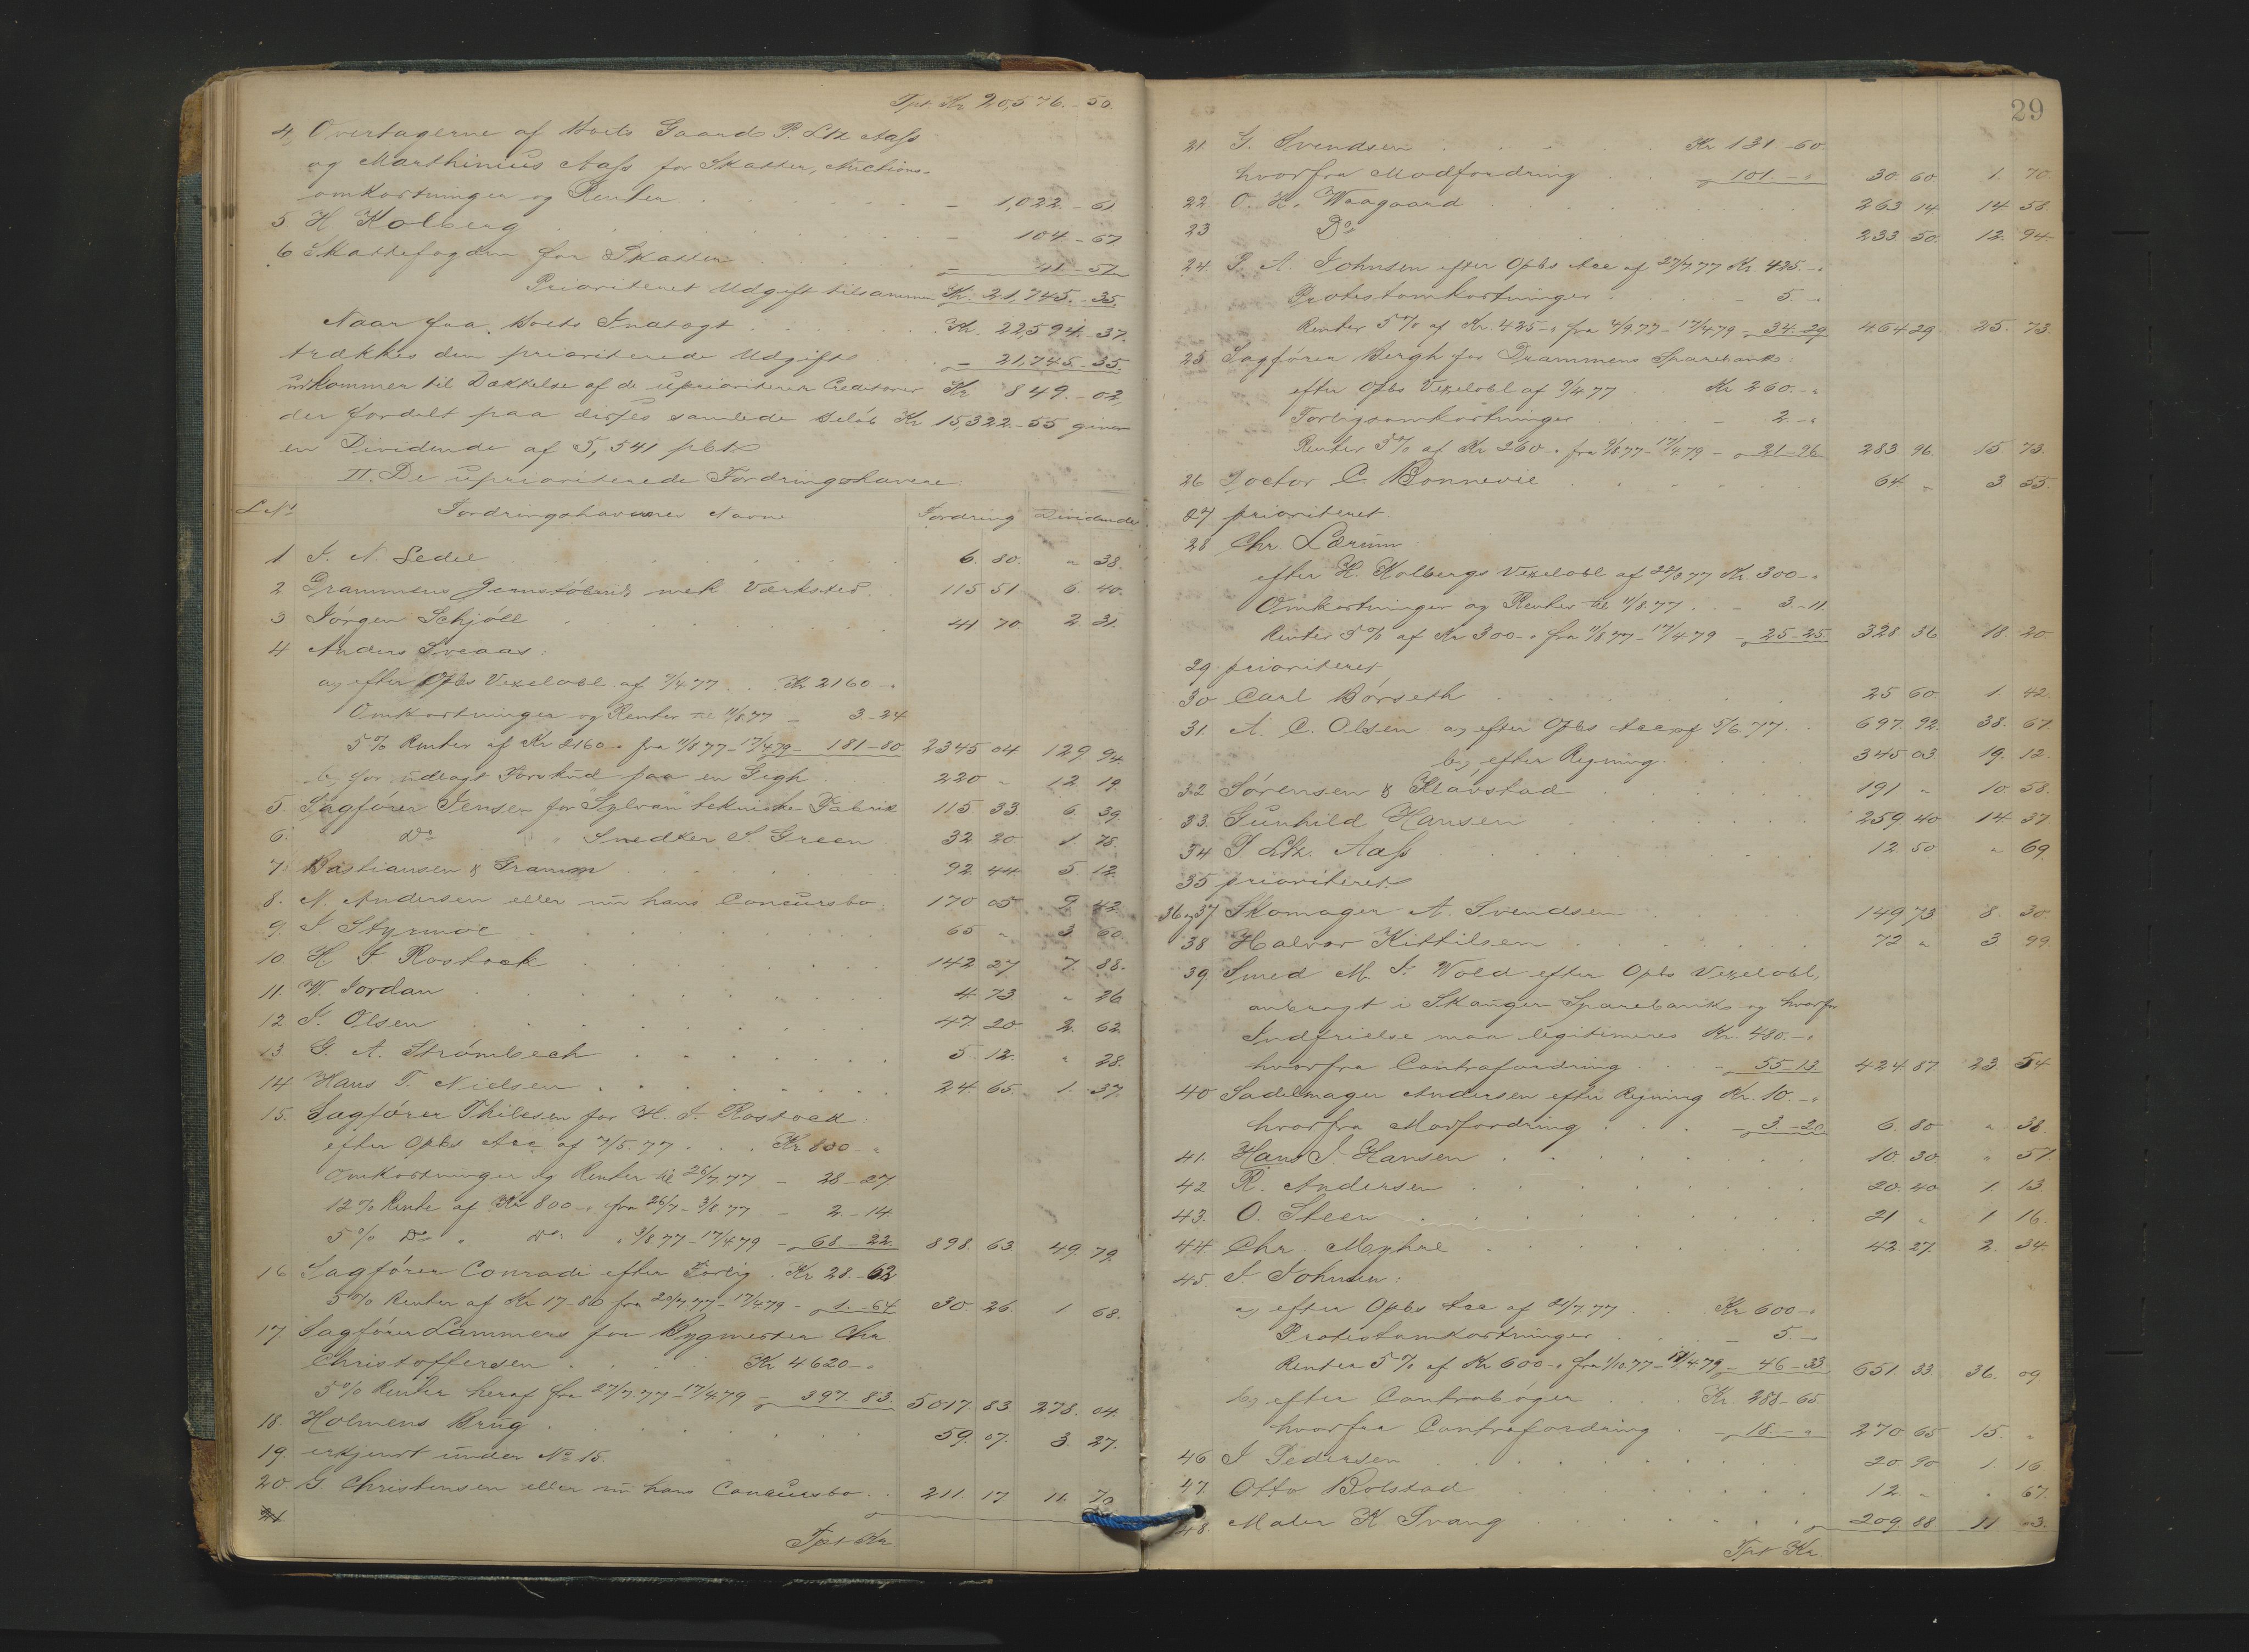 Tpt. Kr. 20,576.-50.
4, Overtagerne af Boets Gaard P. Ltz Aass
og Marthinius Aass for Skatter, Auctions-
omkostninger og Renter . . . . - 1,022.-61.
5 H Kolberg . . . . - 104-67
6 Skattefogden for Skatter . . . . - 41-57
Prioriteret Udgift tilsammen Kr. 21,745.-35.
Naar fra Boets Indtægt . . . . Kr. 22,594.-37.
trækkes den prioriterede Udgift . . - 21,745-35.
udkommer til Dækkelse af de uprioriterede Creditorer Kr 849.-02,
der fordelt paa disses samlede Beløb Kr 15,322-55 giver
en Dividende af 5,541 pCt.
II. De uprioriterede Fordringshavere.
L No Fordringshavernes Navne Fordring Dividende
1 J. N. Sedel . . . 6. 80. " 38.
2 Drammens Jernstøberi & mek Værksted. 115 51 6. 40.
3 Jørgen Schjøll . . . 41 70 2. 31.
4 Anders Tveaas:
a, efter Opbs Vexelobl. af 9/4 77 . . Kr 2160-"
Omkostninger og Renter til 11/8 77 - 3-24
5% Renter af Kr 2160-" fra 11/8 77-17/4 79 - 181-80. 2345 04 129 94.
b, for udlagt Forskud paa en Gigh . 220 " 12 19
5. Sagfører Jensen for "Sylvan" tekniske Fabrik 115 33 6. 39.
6. Do " Snedker S. Green 32. 20 1. 78.
7. Bastiansen & Gramm . . . 92. 44 5 12.
8. N. Andersen eller nu hans Concursbo. 170 05 9. 42.
9. J Styrmoe . . . 65 " 3. 60.
10 H. J Rostock . . . 142 27 7. 88.
11. W. Jordan . . . 4. 73. " 26
12 J. Olsen . . . 47. 20 2. 62
13 G. A. Strömbech . . . 5. 12. " 28.
14 Hans T. Nielsen . . . 24. 65. 1. 37.
15. Sagfører Thilesen for H. J. Rostock:
efter Opbs Acc af 7/5. 77 . . . Kr 800-"
Omkostninger og Renter til 26/7. 77 - 28-27
12% Rente af Kr 800-" fra 26/7-3/8 77 - 2-14
5% Do " Do " 3/8 77-17/4 79 - 68-22. 898. 63 49. 79.
16 Sagfører Conradi efter Forlig . Kr 28.-62
5% Renter af Kr 17-80 fra 20/7 77-17/4 79 - 1.-64 30. 26. 1 68.
17 Sagfører Lammers for Bygmester Chr
Christoffersen . . . Kr 4620-"
5% Renter heraf fra 27/7. 77-17/4 79 - 397. 83. 5017. 83 278. 04.
18. Holmens Brug . . . 59. 07. 3. 27.
19. erkjendt under No 15.
20 G Christensen eller nu hans Concursbo . . 211. 17 11. 70
21
Tpt Kr
29
21 G. Svendsen . . . Kr 131-60.
hvorfra Modfordring . . - 101.-" 30. 60 1. 70.
22 O. H. Waagaard . . . 263 14 14 58.
23 Do . . . 233. 50. 12. 94.
24. P. A. Johnsen efter Opbs Acc af 27/7 77 Kr. 425.-"
Protestomkostninger . . - 5.-"
Renter 5% af Kr. 425-" fra 4/9 77-17/4 79 - 34.-29 464 29 25. 73.
25 Sagfører Bergh for Drammens Sparebank:
efter Opbs Vexelobl af 9/4 77 . Kr 260.-"
Forligsomkostninger . . - 2.-"
Renter 5% af Kr 260-" fra 9/8 77-17/4 79 - 21-96 283 96. 15 73.
26 Doctor C. Bonnevie . . . 64 " 3 55.
27 prioriteret.
28 Chr. Lærum
efter H. Kolbergs Vexelobl af 22/3 77 Kr 300-"
Omkostninger og Renter til 11/8. 77 . . - 3.-11.
Renter 5% af Kr 300-" fra 11/8 77-17/4 79 - 25-25. 328 36 18. 20.
29. prioriteret
30 Carl Børseth . . . 25 60. 1. 42.
31. A. C. Olsen a, efter Opbs Acc. af 5/6. 77. . 697. 92. 38. 67.
b, efter Regning . . . 345 03 19. 12.
32 Sørensen & Klavstad . . . 191 " 10. 58.
33. Gunhild Hansen . . . 259. 40 14 37.
34 P Ltz. Aass . . . 12. 50 " 69.
35 prioriteret.
36 og 37 Skomager A. Svendsen . . . 149 73 8. 30.
38 Halvor Kittilsen . . . 72 " 3. 99.
39 Smed M. J. Wold efter Opbs Vexelobl,
anbragt i Skauger Sparebank og hvorfor
Indfrielse maa legitimeres Kr. 480.-"
hvorfra Contrafordring . . - 55-13 424. 87 23. 54
40 Sadelmager Andersen efter Regning Kr. 10.-"
hvorfra Modfordring . . . - 3.-20 6. 80 " 38
41. Hans J. Hansen . . . 10. 30. " 57.
42 R. Andersen . . . 20. 40 1. 13.
43. O. Steen . . . 21 " 1 16.
44. Chr. Myhre . . . 42. 27. 2. 34.
45. J. Johnsen:
a, efter Opbs Acc af 21/7 77 . . Kr 600-"
Protestomkostninger . . - 5.-"
Renter 5% af Kr 600-" fra 1/10. 77-17/4 79 - 46-33 651. 33. 36. 09
b, efter Contrabøger . . . Kr. 288-65.
hvorfra Contrafordring . - 18.-" 270 65 15. "
46 J Pedersen . . . 20 90 1. 16
47. Otto Bolstad . . . 12. " " 67.
48. Maler K. Svang . . . 209. 88 11 63.
Tpt Kr.